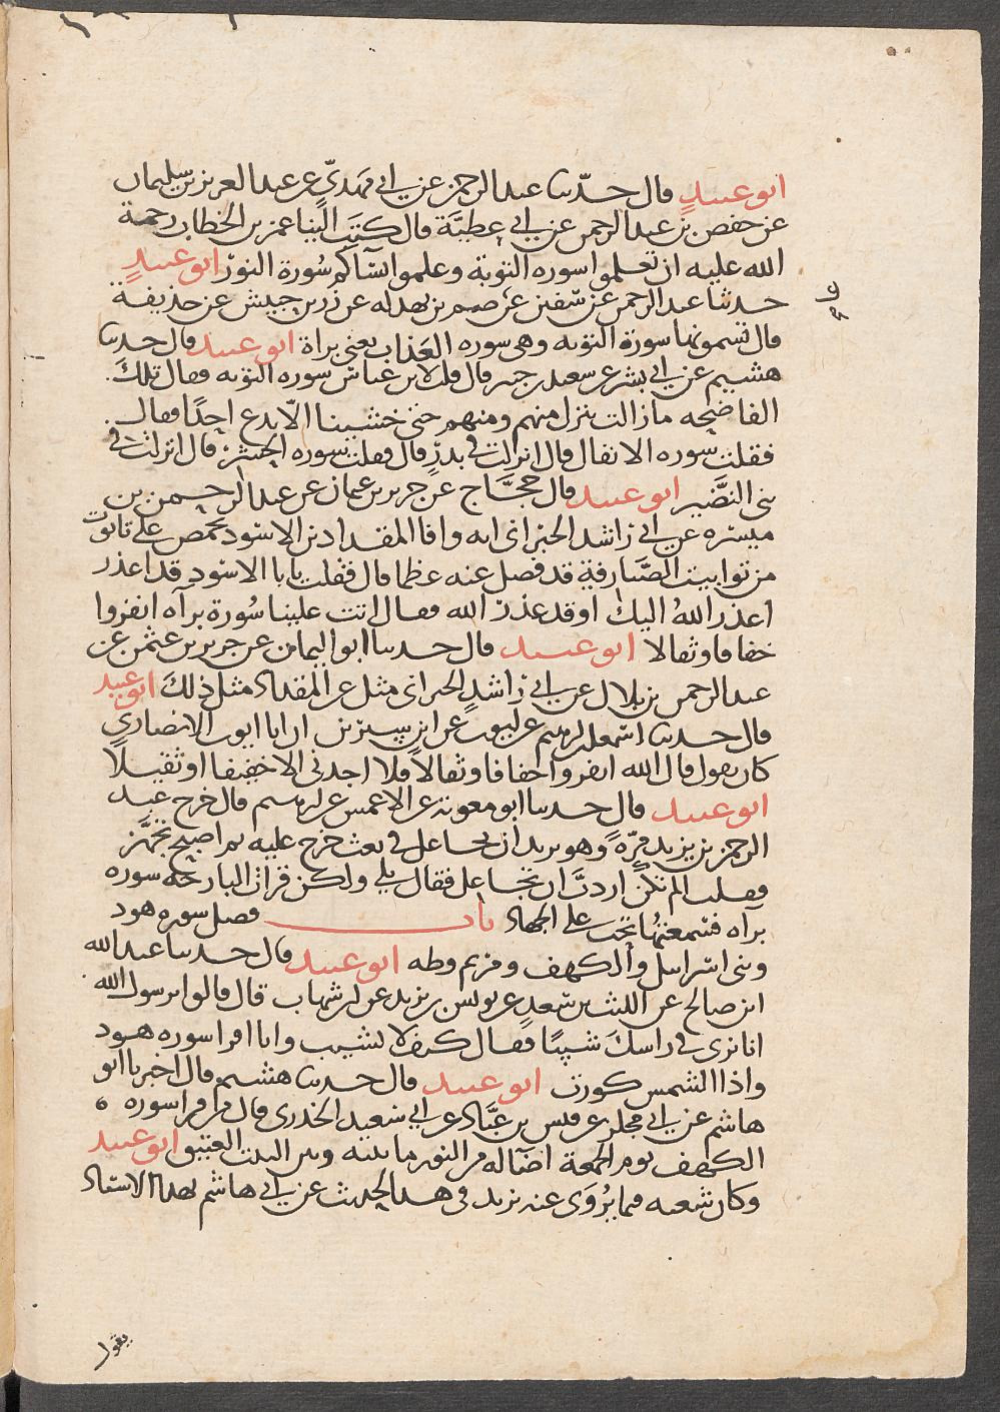 ابو عبيد قال حدثنا عبد الرحمن عن ابي مهدي عن عبد العزيز بن سليمان
عن حفص بن عبد الرحمن عن ابي عطية قال كتب الينا عمر بن الخطاب رحمة
الله عليه ان تعلموا سورة التوبة وعلموا نساكم سورة النور ابو عبيد
حدثنا عبد الرحمن عن سفين عن عصم بن بهدله عن زر بن حبيش عن حذيفة
قال تسمونها سورة التوبه وهي سوره العذاب يعني براة ابو عبيد قال حدثنا
هشيم عن ابي بشر عن سعيد بن جبير قال قلت لابن عباس سوره التوبه فقال تلك
الفاضحه مازالت تنزل منهم ومنهم حتى خشينا الا يدع احدا فقال
فقلت سوره الانفال قال انزلت في بدر قال فقلت سوره الحشر قال انزلت في
بني النضير ابو عبيد قال حجاج عن جرير بن عمان عن عبد الرحمن بن
ميسره عن ابي راشد الحبراني انه وافا المقداد بن الاسود بحمص على تابوت
من توابيت الصيارفة قد فصل عنه عظما قال فقلت يابا الاسود قد اعذر
اعذر الله اليك او قد عذر الله فقال اتت علينا سورة براه انفروا
خفافا وثقالا ابو عبيد قال حدثنا ابو اليمان عن جرير بن عثمن عن
عبد الرحمن بن بلال عن ابي راشد الحبراني مثل عن المقداد مثل ذلك ابو عبيد
قال حدثنا اسمعيل بن ابرهيم عن ايوب عن ابن سيرين ان ابا ايوب الانصاري
كان يقول قال الله انفروا خفافا وثقالا فلا اجدني الا خفيفا او ثقيلا
ابو عبيد قال حدثنا ابو معوية عن الاعمش عن ابرهيم قال خرج عبد
الرحمن بن يزيد مرة وهو يريد ان يجاعل في بعث خرج عليه ثم اصبح تجهز
فقلت الم تكن اردت ان تجاعل فقال بلى ولكن قرات البارحه سوره
براه فسمعتها تحث على الجهاد باب فضل سوره هود
وبني اسرايل والكهف ومريم وطه ابو عبيد قال حدثنا عبد الله
ابن صالح عن الليث بن سعد عن يونس بن يزيد عن ابن شهاب قال قالوا يرسول الله
انا نرى في راسك شيبا فقال كيف لا نشيب وانا اقرا سوره هود
واذا الشمس كورت ابو عبيد قال حدثنا هشيم قال اخبرنا ابو
هاشم عن ابي مجلز عن قيس بن عباد عن ابي سعيد الخدري قال من قرا سوره
الكهف يوم الجمعة اضا له من النور ما بينه وبين البيت العتيق ابو عبيد
وكان شعبه فيما يروى عنه يزيد في هذا الحديث عن ابي هاشم بهذا الاسناد
يقول